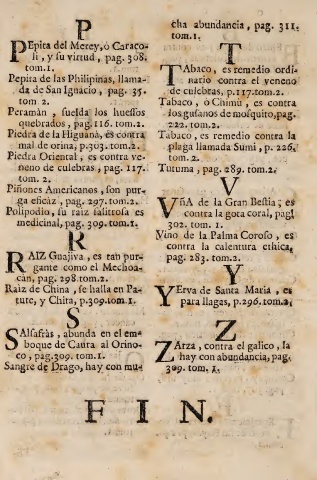 P
PEpita del Merey, ò Caraco-
li, y su virtud, pag. 308.
tom. 1.
Pepita de las Philipinas, llama-
da de San Ignacio, pag. 35.
tom. 2.
Peramàn, suelda los huessos
quebrados, pag. 116. tom. 2.
Piedra de la Higuana, es contra
mal de orina, p. 303. tom. 2.
Piedra Oriental, es contra ve-
neno de culebras, pag. 117.
tom. 2.
Piñones Americanos, son pur-
ga eficàz, pag. 297. tom. 2.
Polipodio, su raìz salitrosa es
medicinal, pag. 309. tom. 1.
R
RAIZ Guajiva, es tan pur-
gante como el Mechoa-
càn, pag. 298. tom. 2.
Raìz de China, se halla en Pa-
tute, y Chita, p. 309. tom. 1.
S
SAlsafràs, abunda en el em-
boque de Caura al Orino-
co, pag. 309. tom. 1.
Sangre de Drago, hay con mu-
cha abundancia, pag. 311.
tom. 1.
T
TAbaco, es remedio ordi-
nario contra el veneno
de culebras, p. 117. tom. 2.
Tabaco, ò Chimù, es contra
los gusanos de mosquito, pag.
222. tom. 2.
Tabaco, es remedio contra la
plaga llamada Sumi, p. 226.
tom. 2.
Tutuma, pag. 289. tom. 2.
V
VñA de la Gran Bestia; es
contra la gota coral, pag.
302. tom. 1.
Vino de la Palma Corofo, es
contra la calentura ethica,
pag. 283. tom. 2.
Y
YErva de Santa Maria, es
para llagas, p. 296. tom. 2.
Z
ZArza, contra el galico, la
hay con abundancia, pag.
309. tom. 1.
FIN.